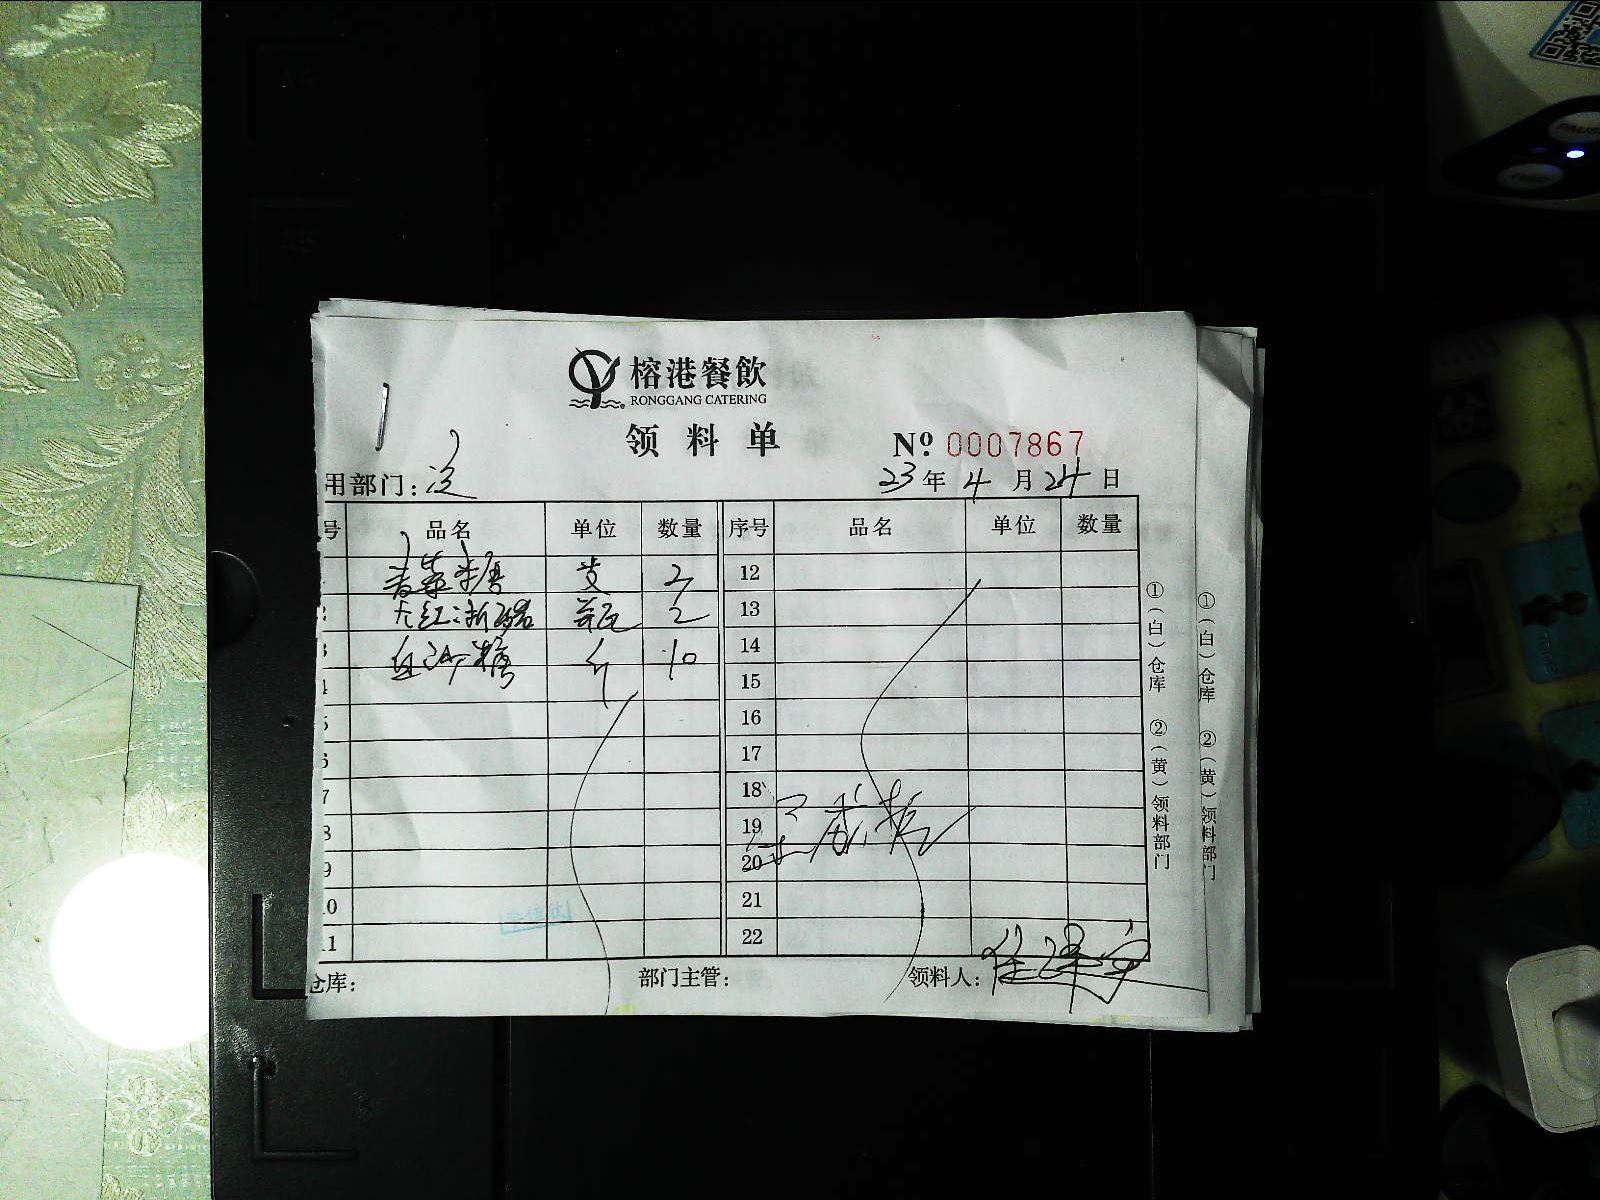 榕港餐飲
RONGGANG CATERING
领料单
№ 0007867
用部门:
23年4月24日
号 品名 单位 数量 序号 品名 单位 数量
支 2 12
大红浙醋 瓶 2 13
3 白沙糖 斤 10 14
15
5 16
6 17
7 18
8 19
9 20
10 21
11 22
仓库: 部门主管: 领料人: 任泽宇
①(白)仓库 ②(黄)领料部门
①(白)仓库 ②(黄)领料部门